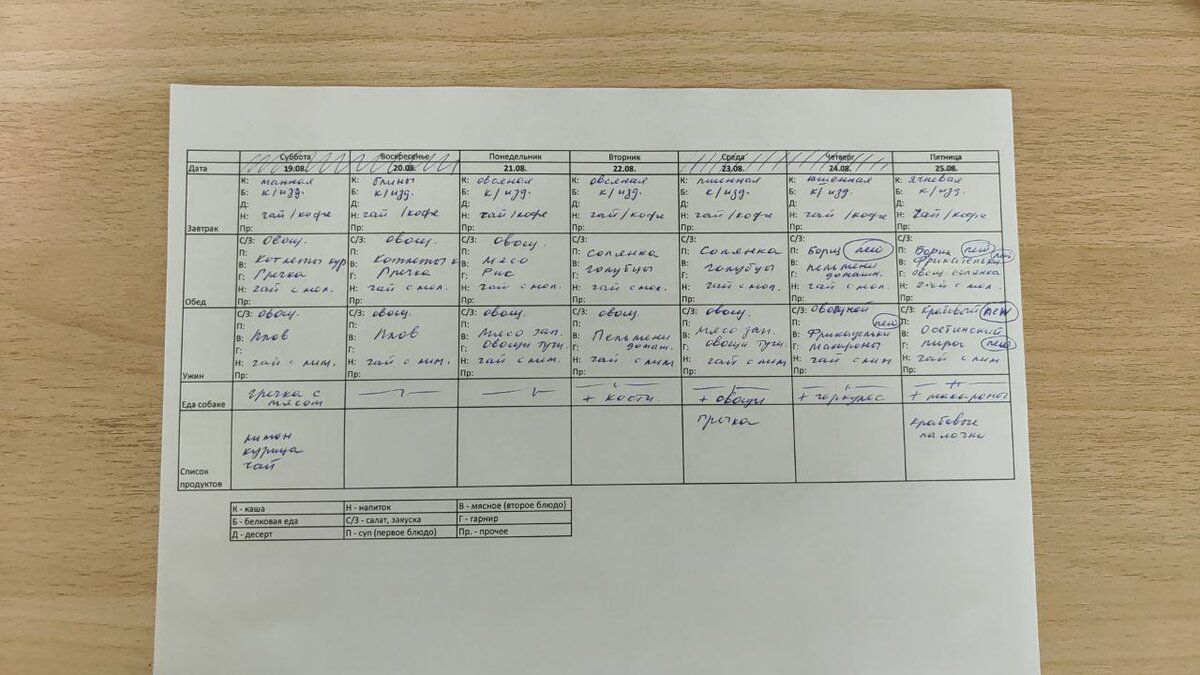 Суббота Воскресенье Понедельник Вторник Среда Четверг Пятница
Дата 19.08. 20.08. 21.08. 22.08. 23.08. 24.08. 25.08.
К: манная К: блины К: овсяная К: овсяная К: пшенная К: пшенная К: ячневая
Б: к/изд. Б: к/изд. Б: к/изд. Б: к/изд. Б: к/изд. Б: к/изд. Б: к/изд.
Д: Д: Д: Д: Д: Д: Д:
Н: чай/кофе Н: чай/кофе Н: чай/кофе Н: чай/кофе Н: чай/кофе Н: чай/кофе Н: чай/кофе
Завтрак Пр: Пр: Пр: Пр: Пр: Пр: Пр:
С/З: овощ. С/З: овощ. С/З: овощ. С/З: С/З: С/З: С/З:
П: П: П: П: солянка П: Солянка П: Борщ new П: Борщ new
В: Котлеты кур В: Котлеты к В: мясо В: голубцы В: голубцы В: пельмени В: фрикадельки new
Г: Гречка Г: Гречка Г: Рис Г: Г: Г: домашн. Г: овощ. солянка
Н: чай с мол. Н: чай с мол. Н: чай с мол. Н: чай с мол. Н: чай с мол. Н: чай с мол. Н: чай с мол.
Обед Пр: Пр: Пр: Пр: Пр: Пр: Пр:
С/З: овощ. С/З: овощ. С/З: овощ. С/З: овощ. С/З: овощ. С/З: овощной С/З: крабовый new
П: П: П: П: П: П: new П: Осетинский
В: Плов В: Плов В: Мясо зап. В: Пельмени В: мясо зап. В: Фрикадельки В:
Г: Г: Г: Овощи туш. Г: домаш. Г: овощи туш. Г: макароны Г: пирог new
Н: чай с лим. Н: чай с лим. Н: чай с лим. Н: чай с лим Н: чай с лим Н: чай с лим Н: чай с лим
Ужин Пр: Пр: Пр: Пр: Пр: Пр: Пр:
Еда собаке гречка с мясом —"— —"— —"— —"— —"— —"—
+ кости. + овощи + геркулес + макароны
лимон гречка крабовые
курица палочки
чай
Список
продуктов
К - каша Н - напиток В - мясное (второе блюдо)
Б - белковая еда С/З - салат, закуска Г - гарнир
Д - десерт П - суп (первое блюдо) Пр. - прочее